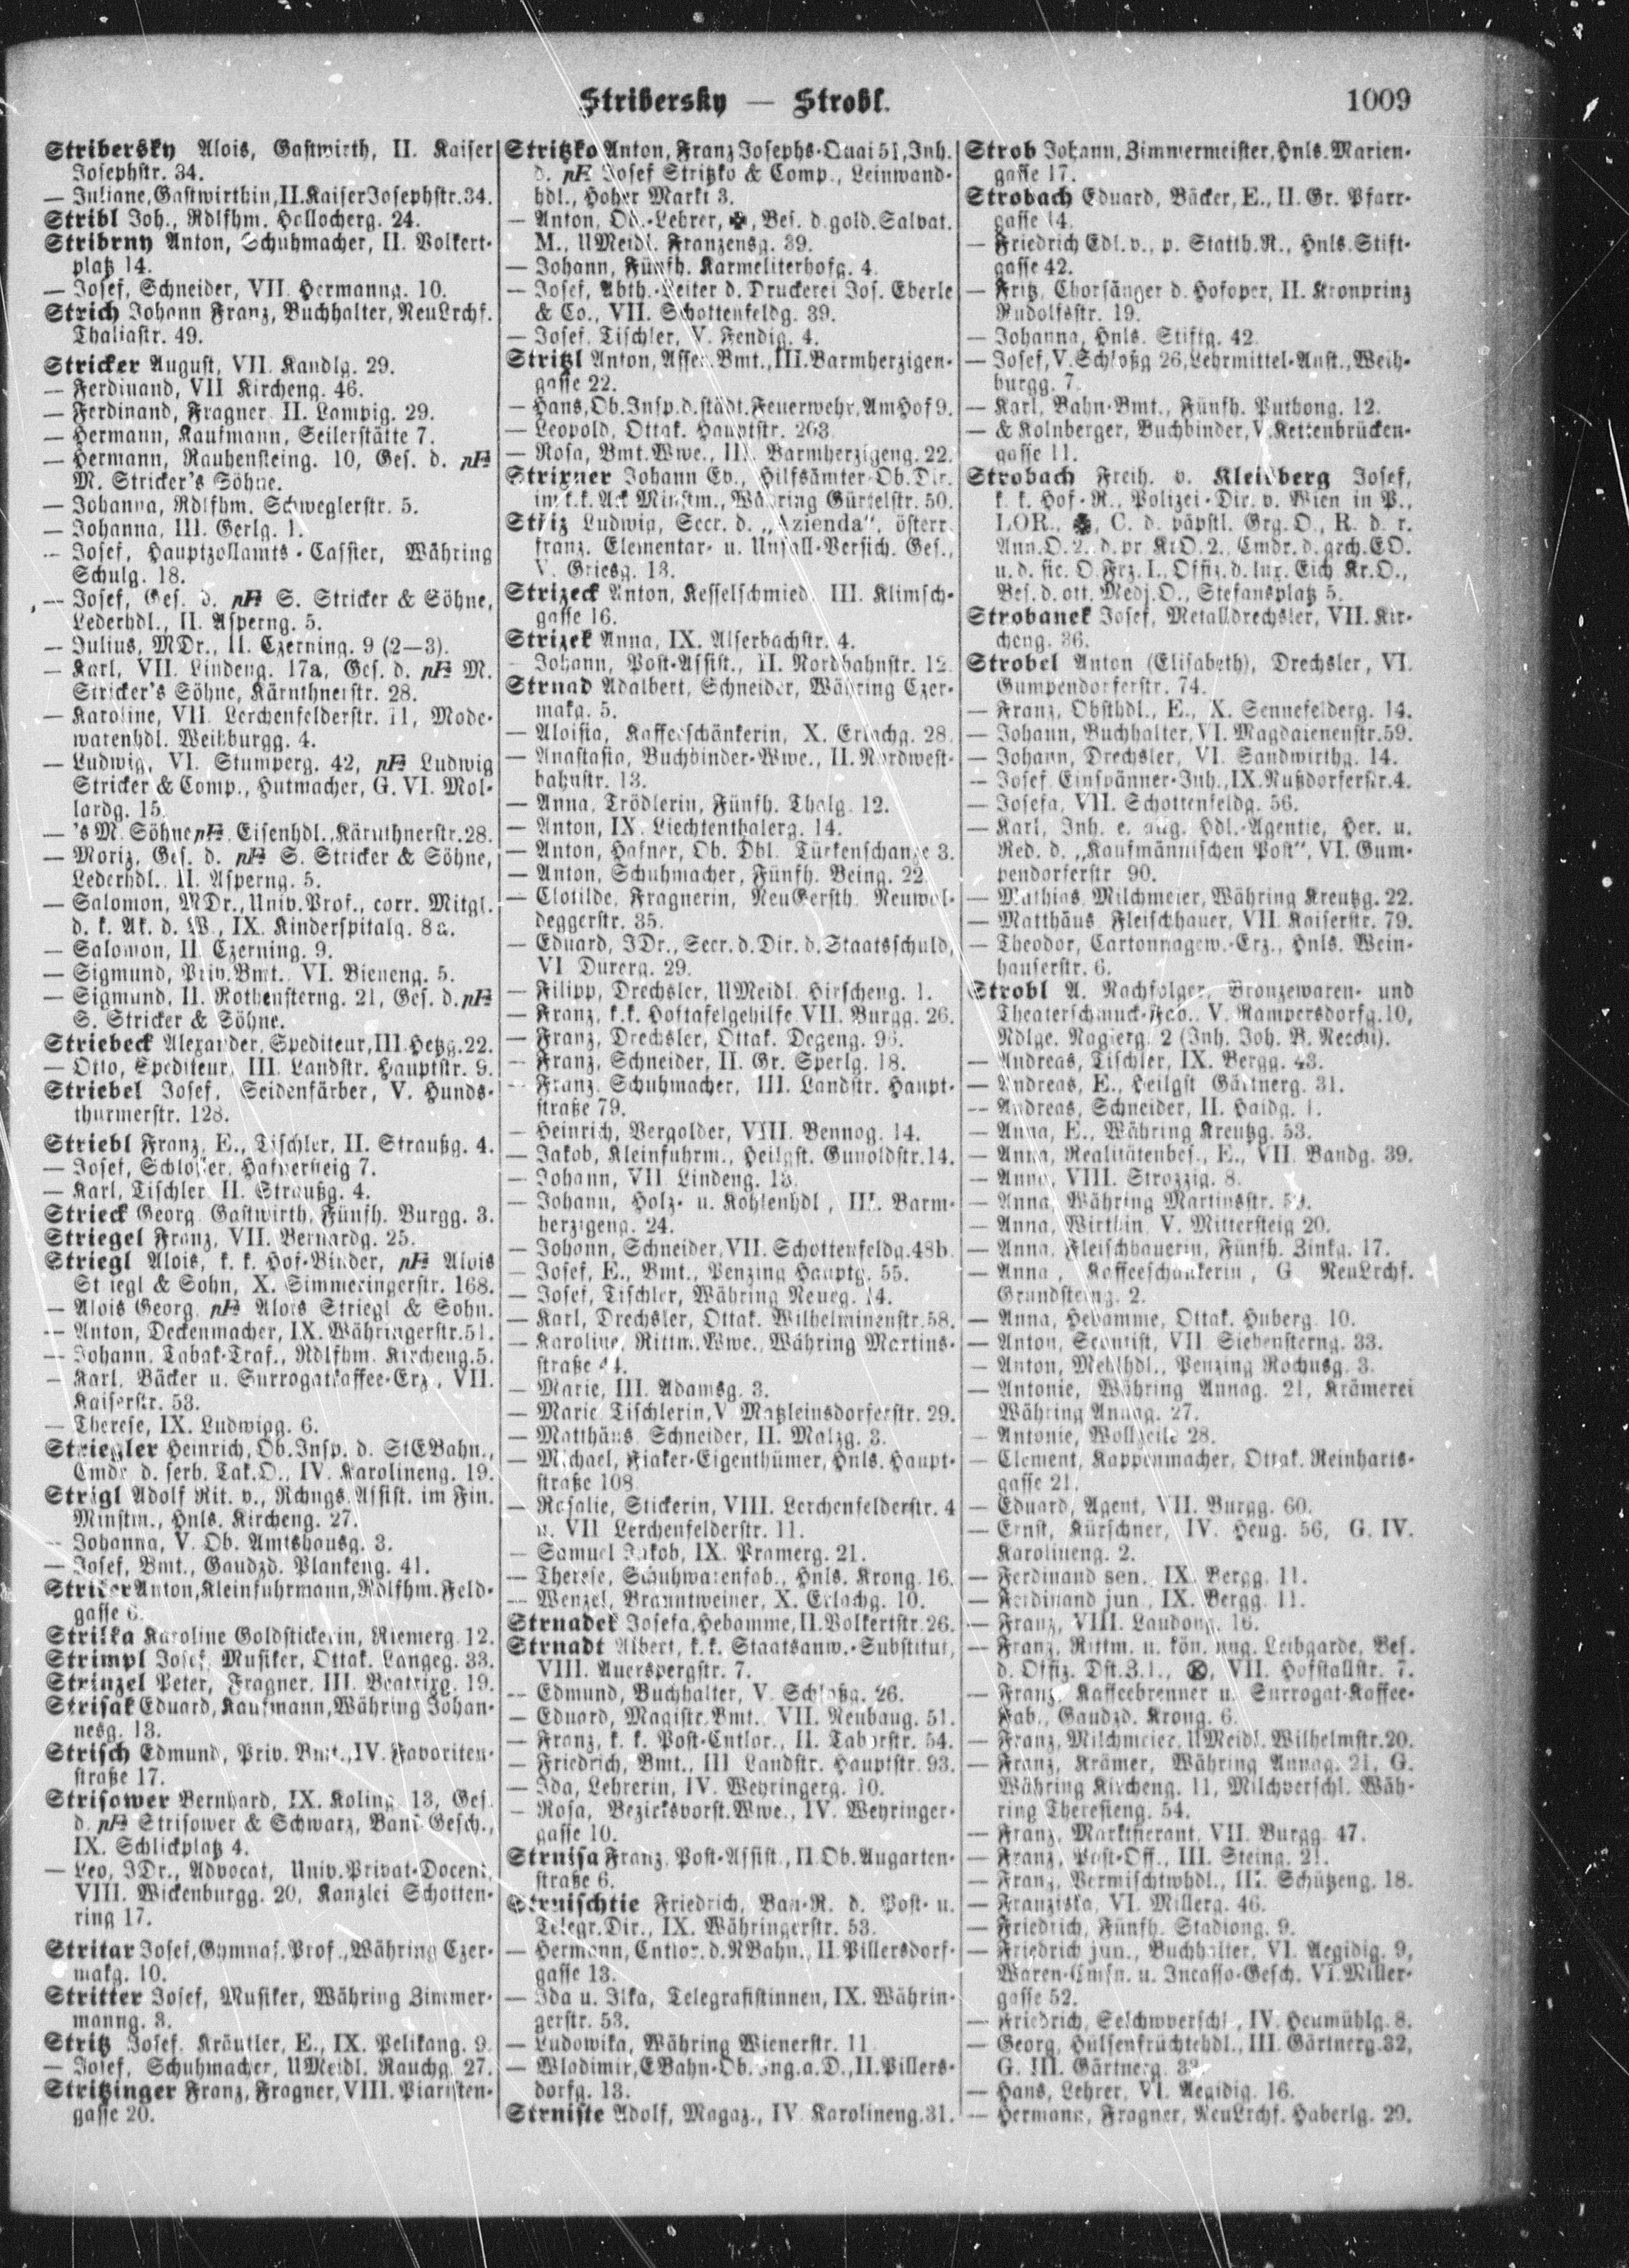 Stribersky — Strobl.
1009
Stribersky Alois, Gastwirth, II. Kaiser
Josephstr. 34.
— Juliane, Gastwirthin, II. Kaiser Josephstr. 34.
Stribl Joh., Rdlfhm. Hollocherg. 24.
Stribrny Anton, Schuhmacher, II. Volkert-
platz 14.
— Josef, Schneider, VII. Hermanng. 10.
Strich Johann Franz, Buchhalter, NeuLrchf.
Thaliastr. 49.
Stricker August, VII. Kandlg. 29.
— Ferdinand, VII Kircheng. 46.
— Ferdinand, Fragner, II. Lampig. 29.
— Hermann, Kaufmann, Seilerstätte 7.
— Hermann, Rauhensteing. 10, Ges. d. pF
M. Stricker's Söhne.
— Johanna, Rdlfhm. Schweglerstr. 5.
— Johanna, III. Gerlg. 1.
— Josef, Hauptzollamts-Cassier, Währing
Schulg. 18.
— Josef, Ges. d. pF S. Stricker & Söhne,
Lederhdl., II. Asperng. 5.
— Julius, MDr., II. Czerning. 9 (2—3).
— Karl, VII. Lindeng. 17a, Ges. d. pF M.
Stricker's Söhne, Kärnthnerstr. 28.
— Karoline, VII. Lerchenfelderstr. 11, Mode-
warenhdl. Weihburgg. 4.
— Ludwig, VI. Stumperg. 42, pF Ludwig
Stricker & Comp., Hutmacher, G. VI. Mol-
lardg. 15.
— 's M. Söhne pF, Eisenhdl., Kärnthnerstr. 28.
— Moriz, Ges. d. pF S. Stricker & Söhne,
Lederhdl., II. Asperng. 5.
— Salomon, MDr., Univ. Prof., corr. Mitgl.
d. k. Ak. d. W., IX. Kinderspitalg. 8a.
— Salomon, II. Czerning. 9.
— Sigmund, Priv. Bmt., VI. Bieneng. 5.
— Sigmund, II. Rothensterng. 21, Ges. d. pF
S. Stricker & Söhne.
Striebeck Alexander, Spediteur, III. Hetzg. 22.
— Otto, Spediteur, III. Landstr. Hauptstr. 9.
Striebel Josef, Seidenfärber, V. Hunds-
thurmerstr. 128.
Striebl Franz, E., Tischler, II. Straußg. 4.
— Josef, Schlosser, Hafnersteig 7.
— Karl, Tischler II. Straußg. 4.
Strieck Georg Gastwirth, Fünfh. Burgg. 3.
Striegel Franz, VII. Bernardg. 25.
Striegl Alois, k. k. Hof-Binder, pF Alois
Striegl & Sohn, X. Simmeringerstr. 168.
— Alois Georg, pF Alois Striegl & Sohn.
— Anton, Deckenmacher, IX. Währingerstr. 51.
— Johann, Tabak-Traf., Rdlfhm. Kircheng. 5.
— Karl, Bäcker u. Surrogatkaffee-Erz., VII.
Kaiserstr. 53.
— Therese, IX. Ludwigg. 6.
Striegler Heinrich, Ob. Insp. d. StEBahn,
Cmdr. d. serb. Tak. O., IV. Karolineng. 19.
Strigl Adolf Rit. v., Rchngs. Assist. im Fin.
Minstm., Hnls. Kircheng. 27.
— Johanna, V. Ob. Amtshausg. 3.
— Josef, Bmt., Gaudzd. Plankeng. 41.
Anton, Kleinfuhrmann, Rdlfhm. Feld-
gasse 6.
Strilka Karoline Goldstickerin, Riemerg. 12.
Strimpl Josef, Musiker, Ottak. Langeg. 33.
Strinzel Peter, Fragner, III. Beatrixg. 19.
Strisak Eduard, Kaufmann, Währing Johan-
nesg. 13.
Strisch Edmund, Priv. Bmt., IV. Favoriten-
straße 17.
Strisower Bernhard, IX. Koling. 13, Ges.
d. pF Strisower & Schwarz, Bank-Gesch.,
IX. Schlickplatz 4.
— Leo, JDr., Advocat, Univ. Privat-Docent,
VIII. Wickenburgg. 20, Kanzlei Schotten-
ring 17.
Stritar Josef, Gymnas. Prof., Währing Czer-
makg. 10.
Stritter Josef, Musiker, Währing Zimmer-
manng. 3.
Stritz Josef, Kräutler, E., IX. Pelikang. 9.
— Josef, Schuhmacher, UMeidl. Rauchg. 27.
Stritzinger Franz, Fragner, VIII. Piaristen-
gasse 20.
Stritzko Anton, Franz Josephs-Quai 51, Inh.
d. pF Josef Stritzko & Comp., Leinwand-
hdl., Hoher Markt 3.
— Anton, Ob.-Lehrer, ✠, Bes. d. gold. Salvat.
M., UMeidl. Franzensg. 39.
— Johann, Fünfh. Karmeliterhofg. 4.
— Josef, Abth.-Leiter d. Druckerei Jos. Eberle
& Co., VII. Schottenfeldg. 39.
— Josef, Tischler, V. Fendig. 4.
Stritzl Anton, Assec. Bmt., III. Barmherzigen-
gasse 22.
— Hans, Ob. Insp. d. städt. Feuerwehr, Am Hof 9.
— Leopold, Ottak. Hauptstr. 203.
— Rosa, Bmt. Wwe., III. Barmherzigeng. 22.
Strixner Johann Ev., Hilfsämter-Ob. Dir.
im k. k. Ack. Minstm., Währing Gürtelstr. 50.
Striz Ludwig, Secr. d. „Azienda", österr.
franz. Elementar- u. Unfall-Versich. Ges.,
V. Griesg. 13.
Strizeck Anton, Kesselschmied, III. Klimsch-
gasse 16.
Strizek Anna, IX. Alserbachstr. 4.
— Johann, Post-Assist., II. Nordbahnstr. 12.
Strnad Adalbert, Schneider, Währing Czer-
makg. 5.
— Aloisia, Kaffeeschänkerin, X. Erlachg. 28.
— Anastasia, Buchbinder-Wwe., II. Nordwest-
bahnstr. 13.
— Anna, Trödlerin, Fünfh. Thalg. 12.
— Anton, IX. Liechtenthalerg. 14.
— Anton, Hafner, Ob. Dbl. Türkenschanze 3.
— Anton, Schuhmacher, Fünfh. Being. 22.
— Clotilde, Fragnerin, NeuGersth. Neuwal-
deggerstr. 35.
— Eduard, JDr., Secr. d. Dir. d. Staatsschuld,
VI Dürerg. 29.
— Filipp, Drechsler, UMeidl. Hirscheng. 1.
— Franz, k. k. Hoftafelgehilfe, VII. Burgg. 26.
— Franz, Drechsler, Ottak. Degeng.
— Franz, Schneider, II. Gr. Sperlg. 18.
— Franz, Schuhmacher, III. Landstr. Haupt-
straße 79.
— Heinrich, Vergolder, VIII. Bennog. 14.
— Jakob, Kleinfuhrm., Heilgst. Gunoldstr. 14.
— Johann, VII Lindeng. 13.
— Johann, Holz- u. Kohlenhdl., III. Barm-
herzigeng. 24.
— Johann, Schneider, VII. Schottenfeldg. 48b.
— Josef, E., Bmt., Penzing Hauptg. 55.
— Josef, Tischler, Währing Neueg. 14.
— Karl, Drechsler, Ottak. Wilhelminenstr. 58.
— Karoline, Rittm. Wwe., Währing Martins-
straße
— Marie, III. Adamsg. 3.
— Marie Tischlerin, V Matzleinsdorferstr. 29.
— Matthäus Schneider, II. Malzg. 3.
— Michael, Fiaker-Eigenthümer, Hnls. Haupt-
straße 108.
— Rosalie, Stickerin, VIII. Lerchenfelderstr. 4
u. VII Lerchenfelderstr. 11.
— Samuel Jakob, IX. Pramerg. 21.
— Therese, Schuhwarenfab., Hnls. Krong. 16.
— Wenzel, Branntweiner, X. Erlachg. 10.
Strnadek Josefa, Hebamme, II. Volkertstr. 26.
Strnadt Albert, k. k. Staatsanw.-Substitut,
VIII. Auerspergstr. 7.
— Edmund, Buchhalter, V. Schloßg. 26.
— Eduard, Magistr. Bmt., VII. Neubaug. 51.
— Franz, k. k. Post-Cntlor., II. Taborstr. 54.
— Friedrich, Bmt., III Landstr. Hauptstr. 93.
— Ida, Lehrerin, IV. Weyringerg. 10.
— Rosa, Bezirksvorst. Wwe., IV. Weyringer-
gasse 10.
Strnisa Franz, Post-Assist., II Ob. Augarten-
straße 6.
Strnischtie Friedrich, Bau-R. d. Post- u.
Telegr. Dir., IX. Währingerstr. 53.
— Hermann, Cntlor. d. NBahn., II. Pillersdorf-
gasse 13.
— Ida u. Ilka, Telegrafistinnen, IX. Währin-
gerstr. 53.
— Ludowika, Währing Wienerstr. 11.
— Wladimir, EBahn-Ob. Ing. a. D., II. Pillers-
dorfg. 13.
Strniste Adolf, Magaz., IV Karolineng. 31.
Strob Johann, Zimmermeister, Hnls. Marien-
gasse 17.
Strobach Eduard, Bäcker, E., II. Gr. Pfarr-
gasse 14.
— Friedrich Edl. v., p. Statth. R., Hnls. Stift-
gasse 42.
— Fritz, Chorsänger d. Hofoper, II. Kronprinz
Rudolfsstr. 19.
— Johanna, Hnls. Stiftg. 42.
— Josef, V. Schloßg 26, Lehrmittel-Anst., Weih-
burgg. 7.
— Karl, Bahn-Bmt., Fünfh. Puthong. 12.
— & Kolnberger, Buchbinder, V. Kettenbrücken-
gasse 11.
Strobach Freih. v. Kleisberg Josef,
k. k. Hof-R., Polizei-Dir. v. Wien in P.,
LOR., ✠, C. d. päpstl. Grg. O., R. d. r.
Ann. O. 2., d. pr KrO. 2., Cmdr. d. grch. EO.
u. d. sic. O. Frz. I., Offiz. d. lux. Eich Kr. O.,
Bes. d. ott. Medj. O., Stefansplatz 5.
Strobanek Josef, Metalldrechsler, VII. Kir-
cheng. 36.
Strobel Anton (Elisabeth), Drechsler, VI.
Gumpendorferstr. 74.
— Franz, Obsthdl., E., X. Sennefelderg. 14.
— Johann, Buchhalter, VI. Magdalenenstr. 59.
— Johann, Drechsler, VI. Sandwirthg. 14.
— Josef, Einspänner-Inh., IX. Nußdorferstr. 4.
— Josefa, VII. Schottenfeldg. 56.
— Karl, Inh. e. allg. Hdl.-Agentie, Her. u.
Red. d. „Kaufmännischen Post", VI. Gum-
pendorferstr 90.
— Mathias, Milchmeier, Währing Kreutzg. 22.
— Matthäus Fleischhauer, VII. Kaiserstr. 79.
— Theodor, Cartonnagew.-Erz., Hnls. Wein-
hauserstr. 6.
Strobl A. Nachfolger, Bronzewaren- und
Theaterschmuck-Fab., V. Rampersdorfg. 10,
Ndlge. Naglerg. 2 (Inh. Joh. B. Recchi).
— Andreas, Tischler, IX. Bergg. 43.
— Andreas, E., Heilgst Gärtnerg. 31.
— Andreas, Schneider, II. Haidg. 1.
— Anna, E., Währing Kreutzg. 53.
— Anna, Realitätenbes., E., VII. Bandg. 39.
— Anna, VIII. Strozzig. 8.
— Anna, Währing Martinsstr.
— Anna, Wirthin, V. Mittersteig 20.
— Anna, Fleischhauerin, Fünfh. Zinkg. 17.
— Anna, Kaffeeschänkerin, G. NeuLrchf.
Grundsteing. 2.
— Anna, Hebamme, Ottak. Huberg. 10.
— Anton, Scontist, VII. Siebensterng. 33.
— Anton, Mehlhdl., Penzing Rochusg. 3.
— Antonie, Währing Annag. 21, Krämerei
Währing Annag. 27.
— Antonie, Wollzeile 28.
— Clement, Kappenmacher, Ottak. Reinharts-
gasse 21.
— Eduard, Agent, VII. Burgg. 60.
— Ernst, Kürschner, IV. Heug. 56, G. IV.
Karolineng. 2.
— Ferdinand sen., IX. Bergg. 11.
— Ferdinand jun., IX. Bergg. 11.
— Franz, VIII. Laudong. 16.
— Franz, Rittm. u. kön. ung. Leibgarde, Bes.
d. Offiz. Dst. Z. 1., VII. Hofstallstr. 7.
— Franz, Kaffeebrenner u. Surrogat-Kaffee-
Fab., Gaudzd. Krong. 6.
— Franz, Milchmeier, UMeidl. Wilhelmstr. 20.
— Franz, Krämer, Währing Annag. 21, G.
Währing Kircheng. 11, Milchverschl. Wäh-
ring Theresieng. 54.
— Franz, Marktfierant, VII. Burgg. 47.
— Franz, Post-Off., III. Steing. 21.
— Franz, Vermischtwhdl., III. Schützeng. 18.
— Franziska, VI. Millerg. 46.
— Friedrich, Fünfh. Stadiong. 9.
— Friedrich jun., Buchhalter, VI. Aegidig. 9,
Waren-Cmsn. u. Incasso-Gesch. VI. Miller-
gasse 52.
— Friedrich, Selchwverschl., IV. Heumühlg. 8.
— Georg, Hülsenfrüchtehdl., III. Gärtnerg. 32,
G. III. Gärtnerg.
— Hans, Lehrer, VI. Aegidig. 16.
— Hermann, Fragner, NeuLrchf. Haberlg. 29.